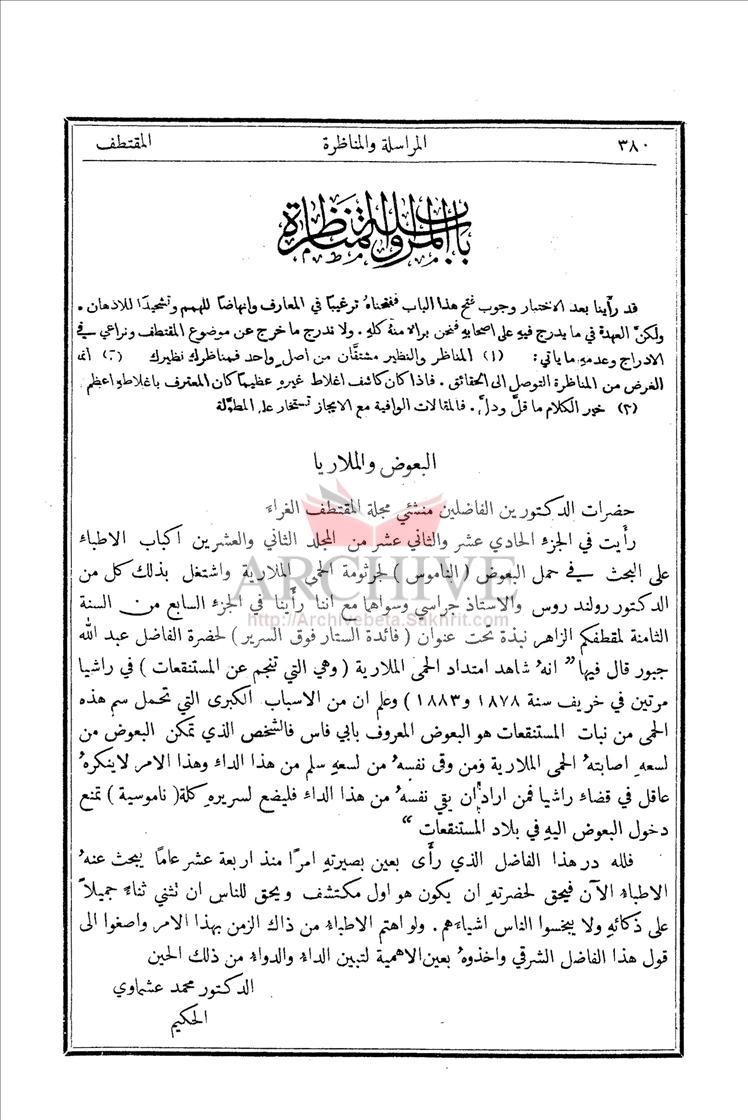 ٣٨٠ المراسلة والمناظرة المقتطف
باب المراسلة والمناظرة
قد رأينا بعد الاختبار وجوب فتح هذا الباب ففتحناهُ ترغيبًا في المعارف وانهاضًا للهمم وتشحيذًا للاذهان .
ولكنَّ العهدة في ما يدرج فيهِ على اصحابهِ فنحن برالا منهُ كلهِ . ولا ندرج ما خرج عن موضوع المقتطف ونراعي في
الادراج وعدمهِ ما ياتي : (١) المناظر والنظير مشتقَّان من اصلٍ واحد فمناظرك نظيرك (٢) انما
الغرض من المناظرة التوصل الى الحقائق . فاذا كان كاشف اغلاط غيرهِ عظيمًا كان المعترف باغلاطهِ اعظم
(٣) خير الكلام ما قلَّ ودلَّ . فالمقالات الوافية مع الايجاز تستخار على المطوَّلة
البعوض والملاريا
حضرات الدكتورين الفاضلين منشئي مجلة المقتطف الغراء
رأيت في الجزء الحادي عشر والثاني عشر من المجلد الثاني والعشرين اكباب الاطباء
على البحث في حمل البعوض (الناموس) لجرثومة الحمى الملارية واشتغل بذلك كل من
الدكتور رولند روس والاستاذ جراسي وسواهما مع اننا رأينا في الجزء السابع من السنة
الثامنة لمقطفكم الزاهر نبذة تحت عنوان (فائدة الستار فوق السرير) لحضرة الفاضل عبد الله
جبور قال فيها "انهُ شاهد امتداد الحمى الملارية (وهي التي تنجم عن المستنقعات) في راشيا
مرتين في خريف سنة ١٨٧٨ و١٨٨٣) وعلم ان من الاسباب الكبرى التي تحمل سم هذه
الحمى من نبات المستنقعات هو البعوض المعروف بابي فاس فالشخص الذي تمكن البعوض من
لسعهِ اصابتهُ الحمى الملارية ومن وقى نفسهُ من لسعهِ سلم من هذا الداء وهذا الامر لاينكرهُ
عاقل في قضاء راشيا فمن اراد ان يقي نفسهُ من هذا الداء فليضع لسريرهِ كلة (ناموسية) تمنع
دخول البعوض اليهِ في بلاد المستنقعات"
فلله در هذا الفاضل الذي رأى بعين بصيرتهِ امرًا منذ اربعة عشر عامًا يبحث عنهُ
الاطباء الآن فيحق لحضرتهِ ان يكون هو اول مكتشف ويحق للناس ان تثني ثناءً جميلاً
على ذكائهِ ولا يبخسوا الناس اشياءهم . ولو اهتم الاطباء من ذاك الزمن بهذا الامر واصغوا الى
قول هذا الفاضل الشرقي واخذوهُ بعين الاهمية لتبين الداء والدواء من ذلك الحين
الدكتور محمد عشماوي
الحكيم
ARCHIVE
http://Archivebeta.Sakhrit.com